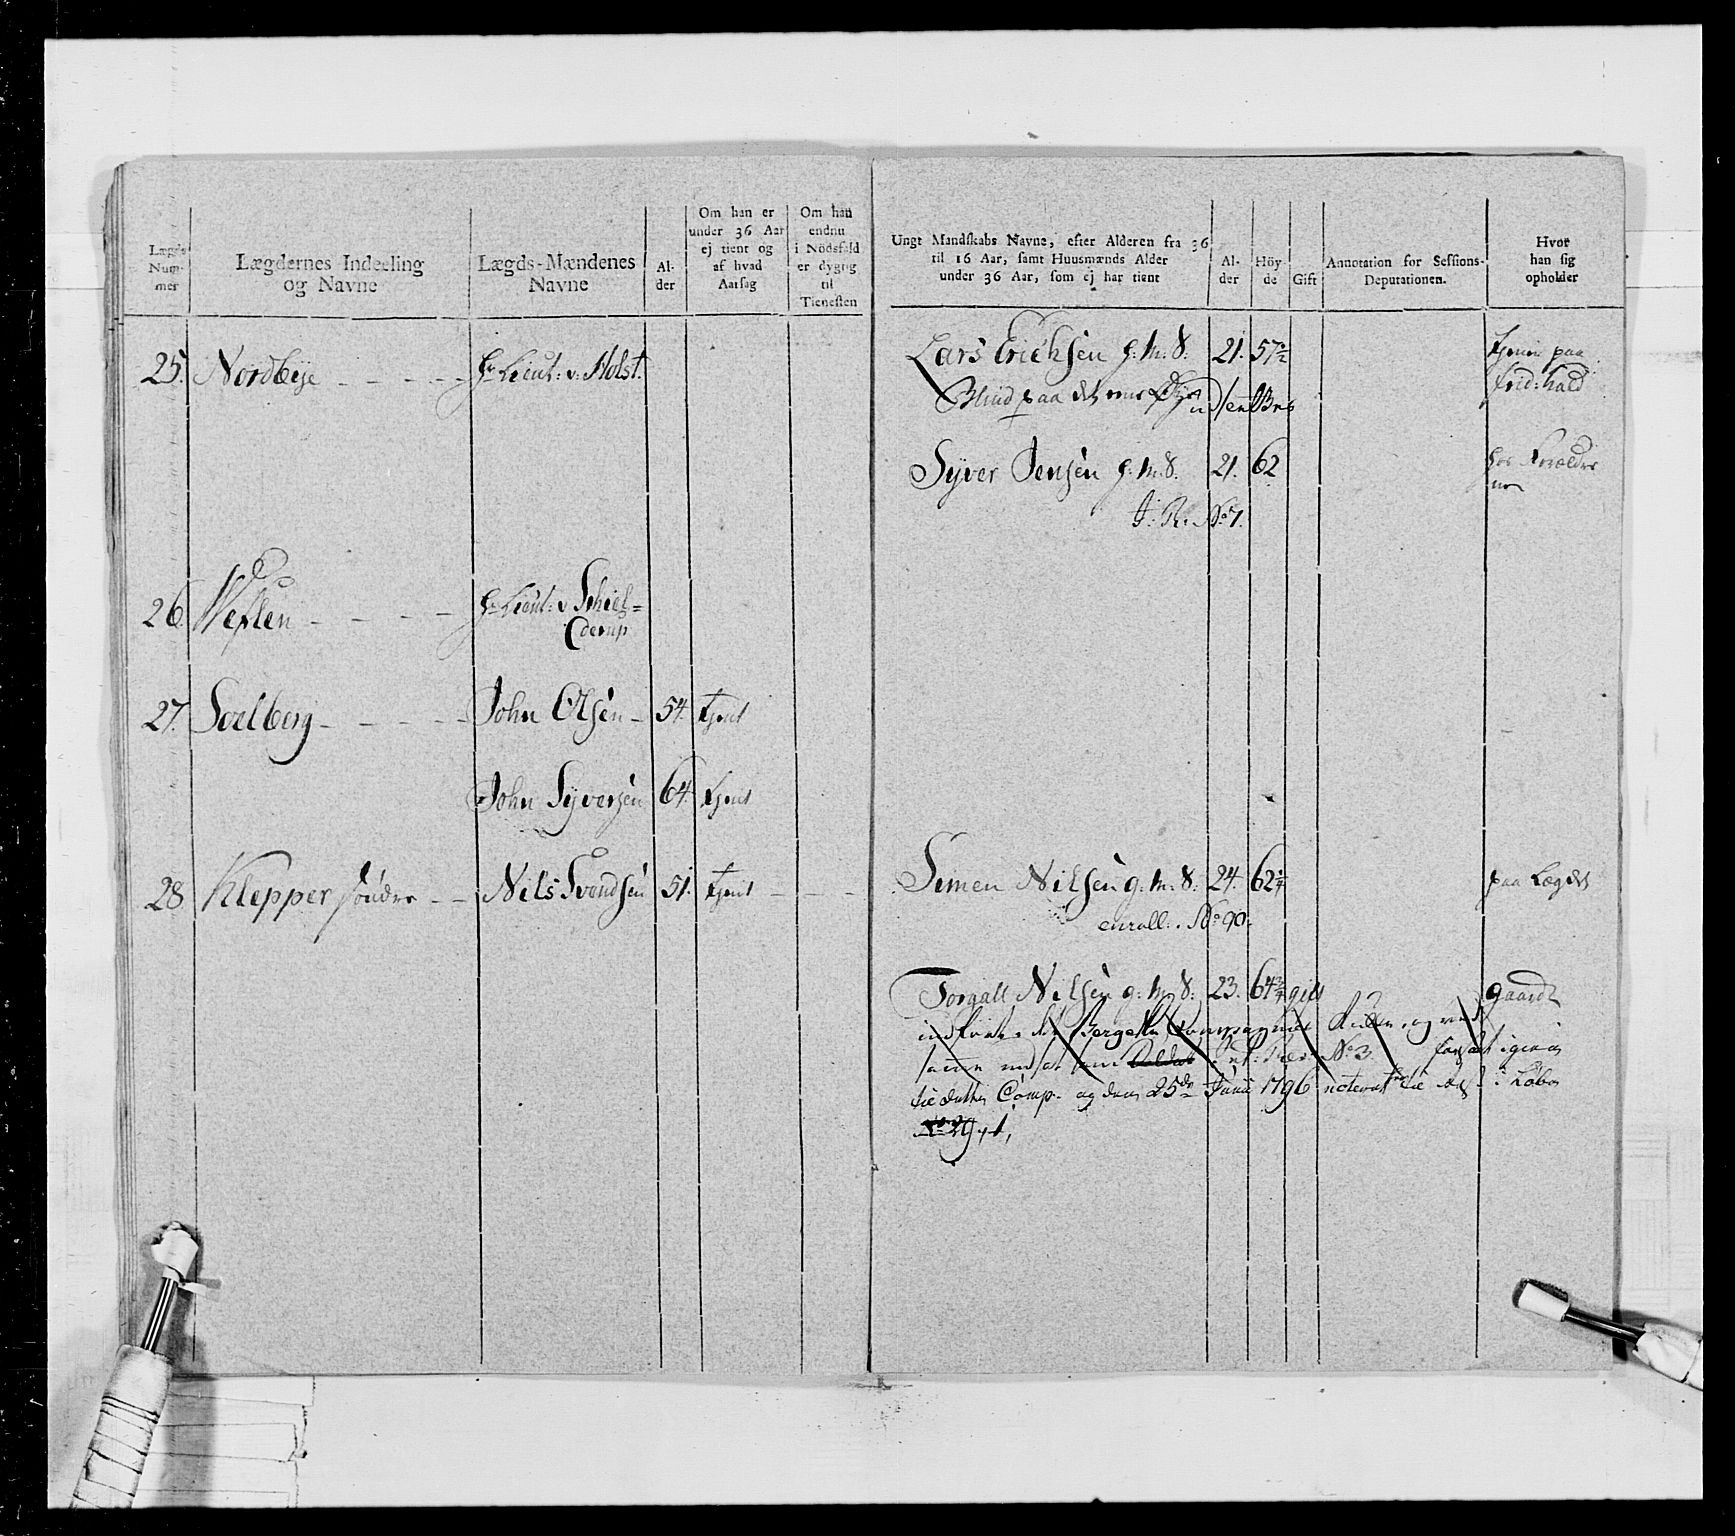 Lægds Num-mer
Lægdernes Indeeling og Navne
Lægds-Mændenes Navne
Al-der
Om han er under 36 Aar ej tient og af hvad Aarsag
Om han endnu i Nödsfald er dygtig til Tienesten
25. Nordbye Hr Lieut: v: Holst.
26. Hr Lieut: v Schiel=
derup
27. Soelberg John Olsen 54. tjent
John Syversen 64. tjent
28 Klepper söndre Nils Svendsen 51. tjent
Ungt Mandskabs Navne, efter Alderen fra 36 til 16 Aar, samt Huusmænds Alder under 36 Aar, som ej har tient
Al-der
Höy-de
Gift
Annotation for Sessions-Deputationen.
Hvor han sig opholder
Lars Erichsen g: M: S: 21. 57½ tjener paa
Blind paa det ene Øye frid:hald
Syver Jensen g: M: S. 21. 62 hos Forældre
J: R: No 7. ne
Simen Nilsen g: M: S: 24. 62¼ paa Lægdet
enroll: No 90.
Torgall Nilsen g: M: S: 23. 64¾ gift gaard
Compagnie
samme No 3. igien
Comp. og den 25de Junii 1796 noteret
No 29